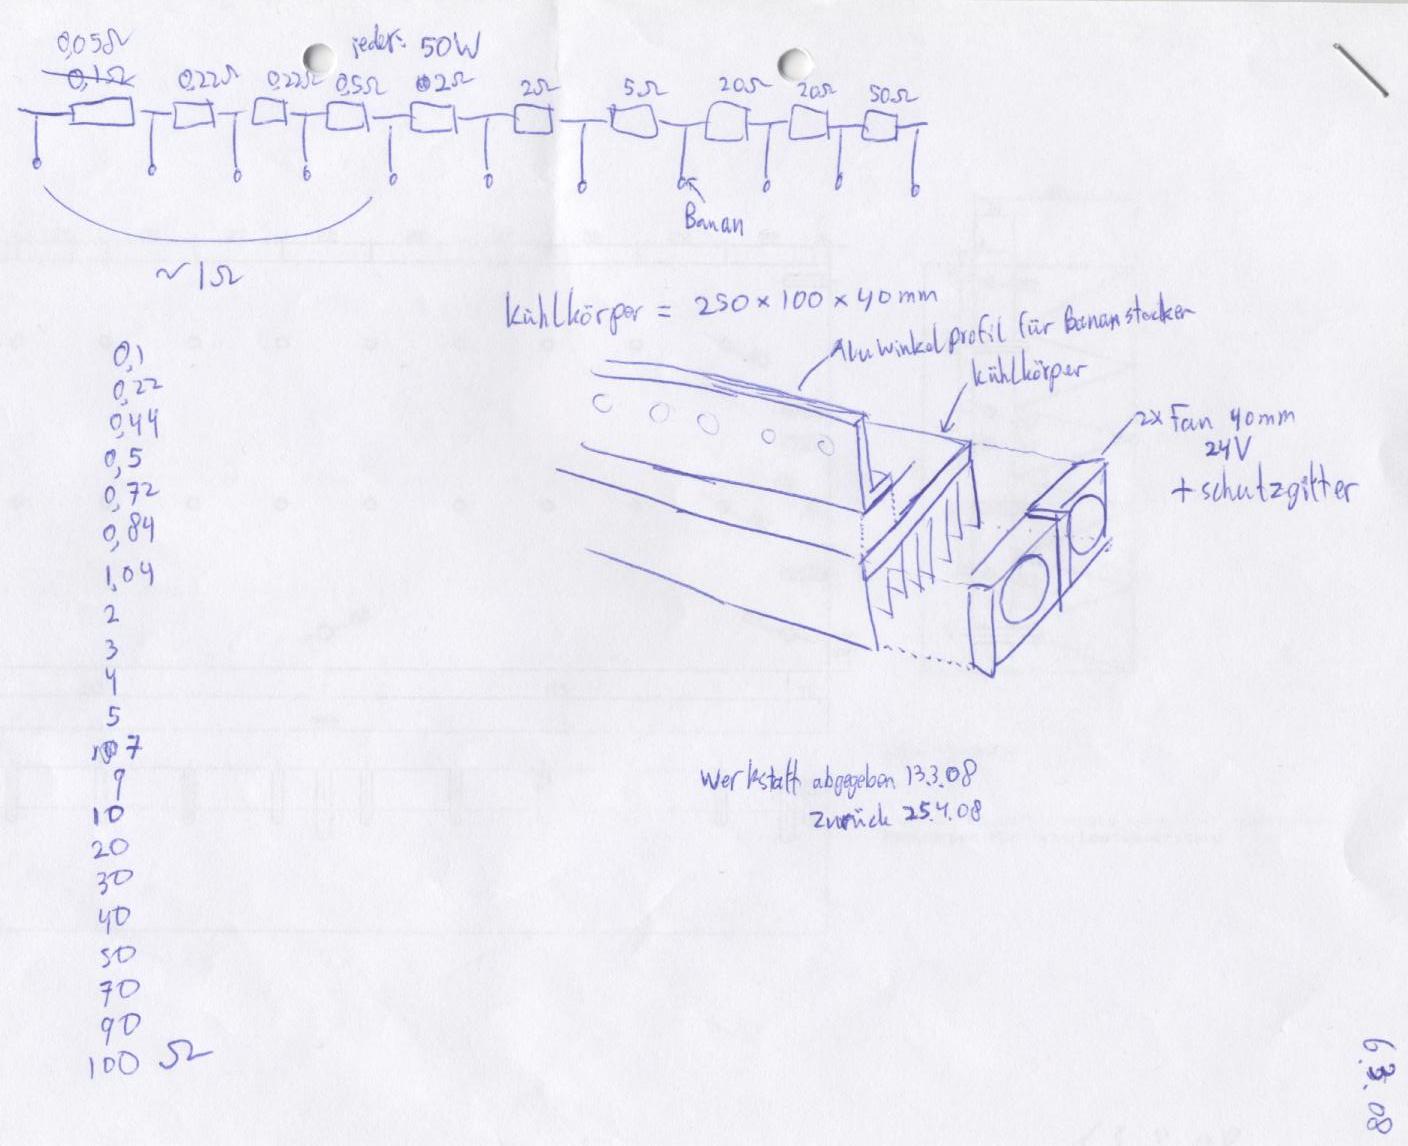 0,05Ω
0,1Ω
jeder: 50W
0,22Ω 0,22Ω 0,5Ω 2Ω 2Ω 5Ω 20Ω 20Ω 50Ω
Banan
~1Ω
Kühlkörper = 250 × 100 × 40 mm
Alu winkelprofil für Bananstecker
Kühlkörper
2x Fan 40mm
24V
+ schutzgitter
0,1
0,22
0,44
0,5
0,72
0,84
1,04
2
3
4
5
7
9
10
20
30
40
50
70
90
100 Ω
Werkstatt abgegeben 13.3.08
Zurück 25.4.08
6.3.08